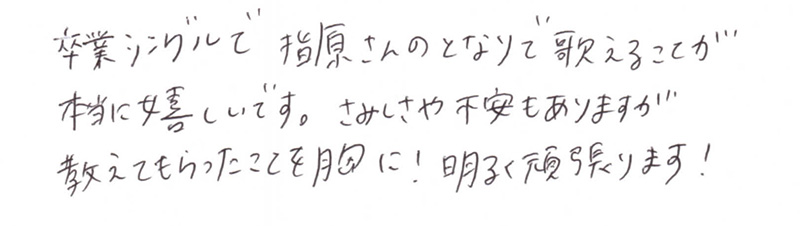 卒業シングルで 指原さんのとなりで歌えることが
本当に嬉しいです。さみしさや不安もありますが
教えてもらったことを胸に！明るく頑張ります！